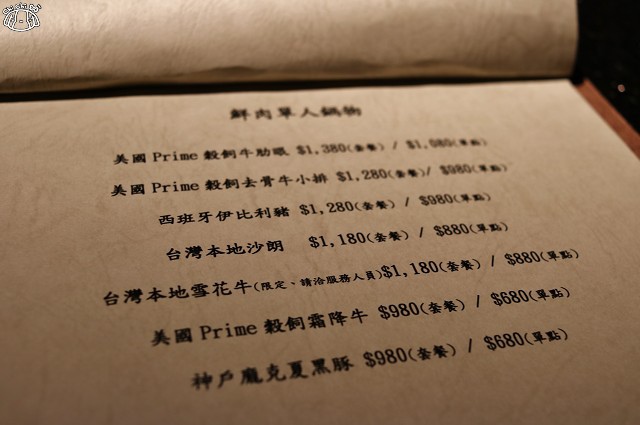 鮮肉單人鍋物
美國 Prime 穀飼牛肋眼 $1,380(套餐) / $1,080(單點)
美國 Prime 穀飼去骨牛小排 $1,280(套餐)/ $980(單點)
西班牙伊比利豬 $1,280(套餐) / $980(單點)
台灣本地沙朗 $1,180(套餐) / $880(單點)
台灣本地雪花牛(限定、請洽服務人員)$1,180(套餐) / $880(單點)
美國 Prime 穀飼霜降牛 $980(套餐) / $680(單點)
神戶龐克夏黑豚 $980(套餐) / $680(單點)